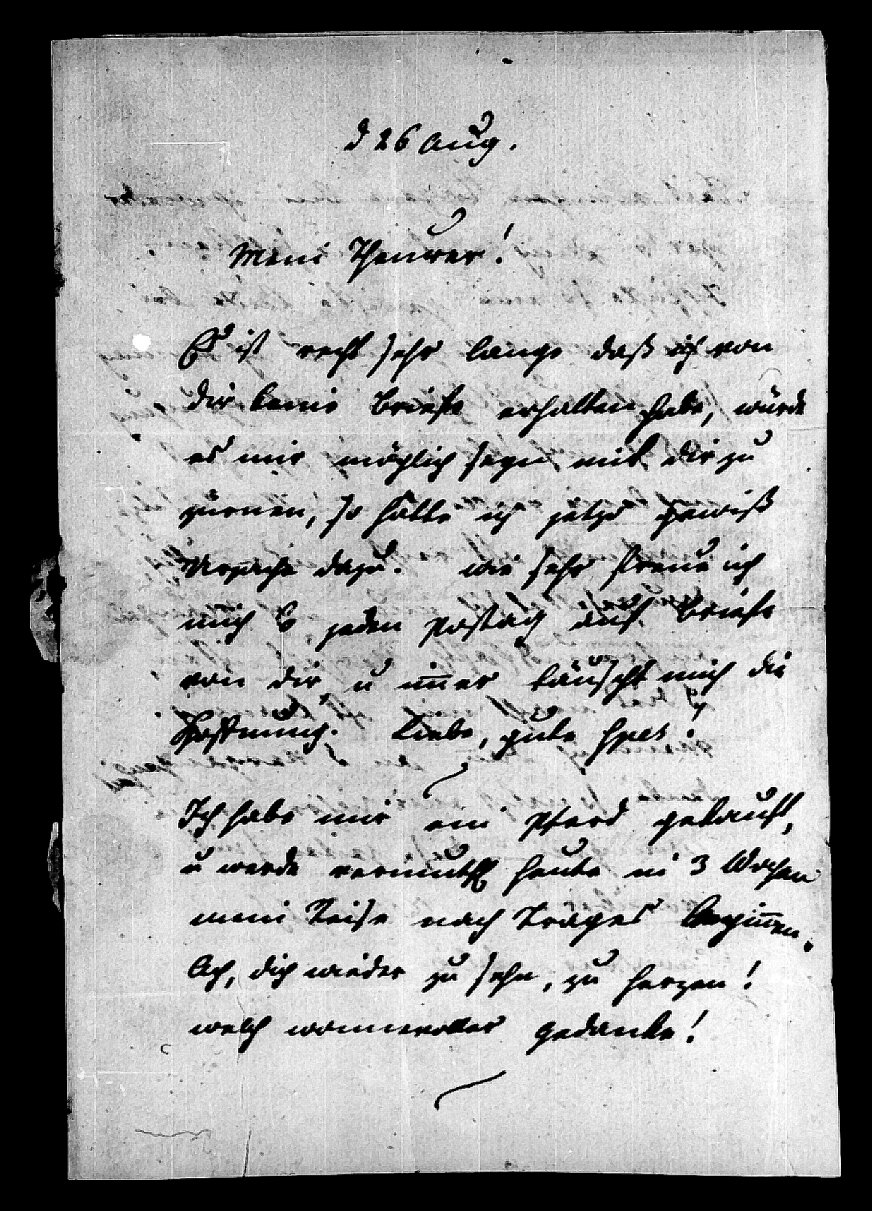 d 26 Aug.
Mein Theurer!
Es ist recht sehr lange daß ich von
dir keine Briefe erhalten habe, würde
es mir möglich seyn mit dir zu
zürnen, so hätte ich jetzo gewiß
Ursache dazu. Wie sehr freue ich
mich jeden Postag auf Briefe
von dir, u im̄er täuscht mich die
Hoffnung. Liebe, gute!
Ich habe mir ein Pferd gekauft,
u werde vermuthl heute in 3 Wochen
meine Reise nach Trages beginnen.
Ach, dich wieder zu sehn, zu herzen!
welch wonnevoller Gedanke!